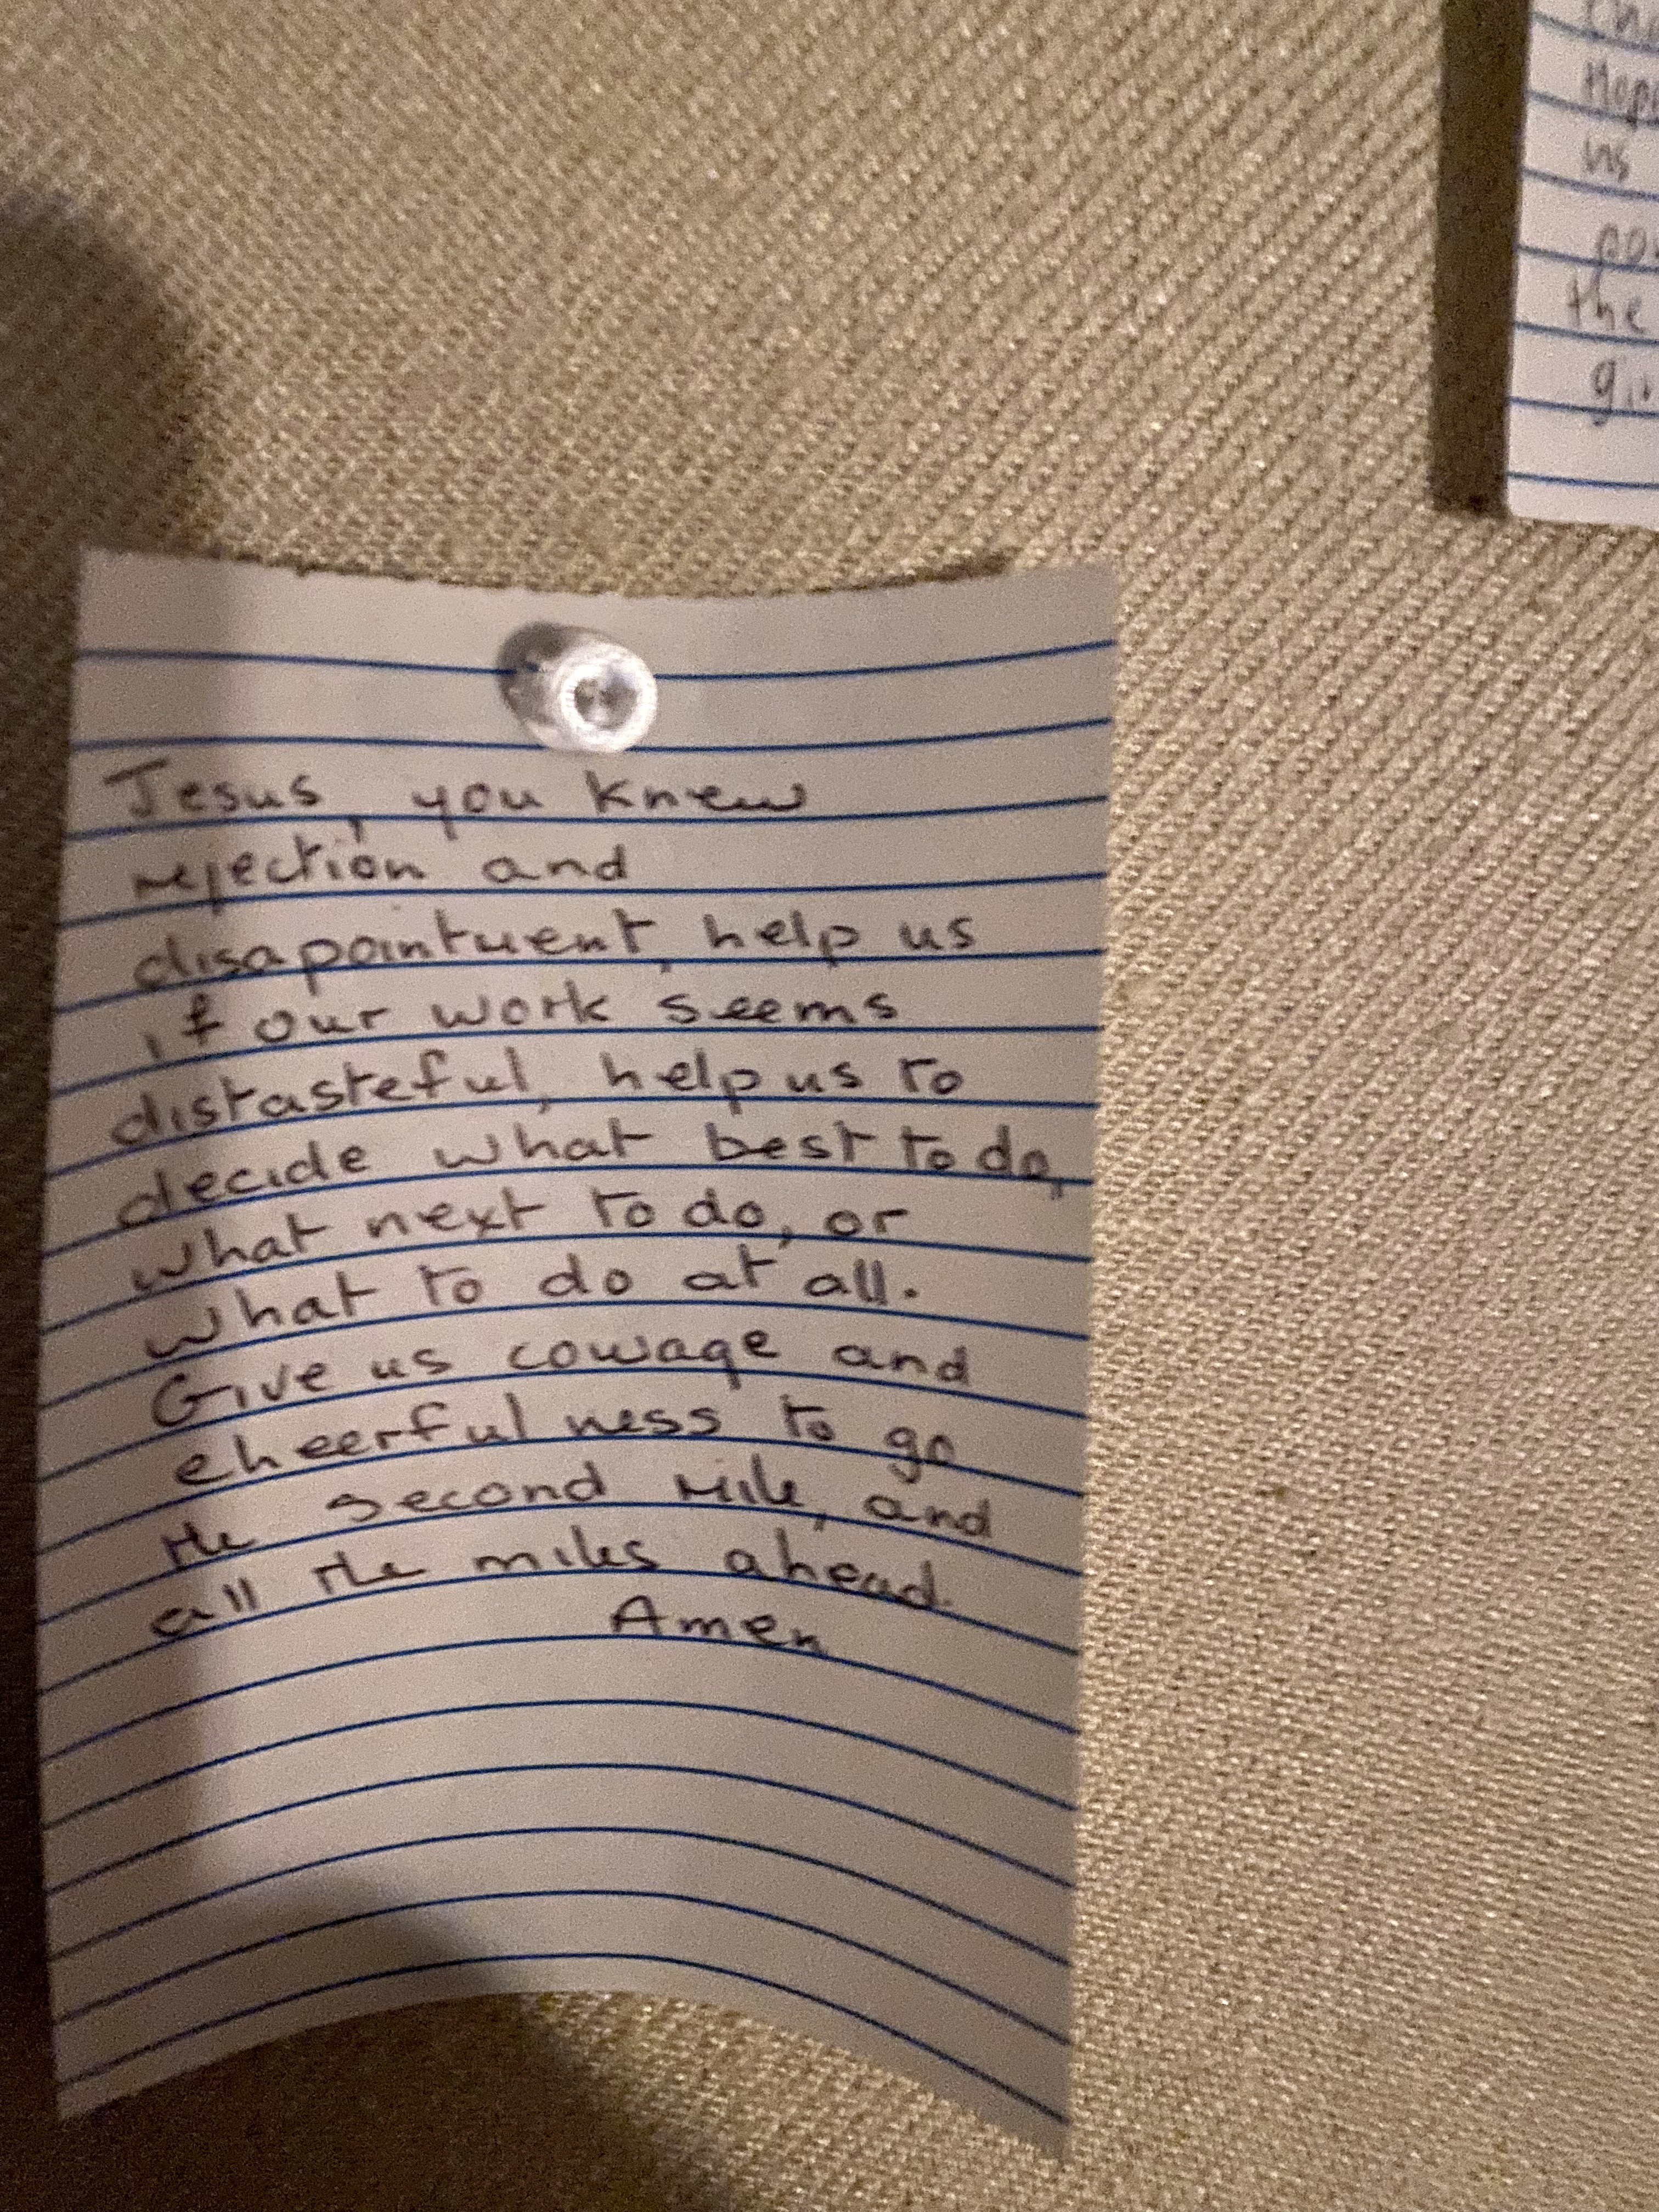 Jesus, you knew
rejection and
disapointment, help us
if our work seems
distasteful, help us to
decide what best to do,
what next to do, or
what to do at all.
Give us courage and
cheerfulness to go
the second mile, and
all the miles ahead.
Amen
us
the